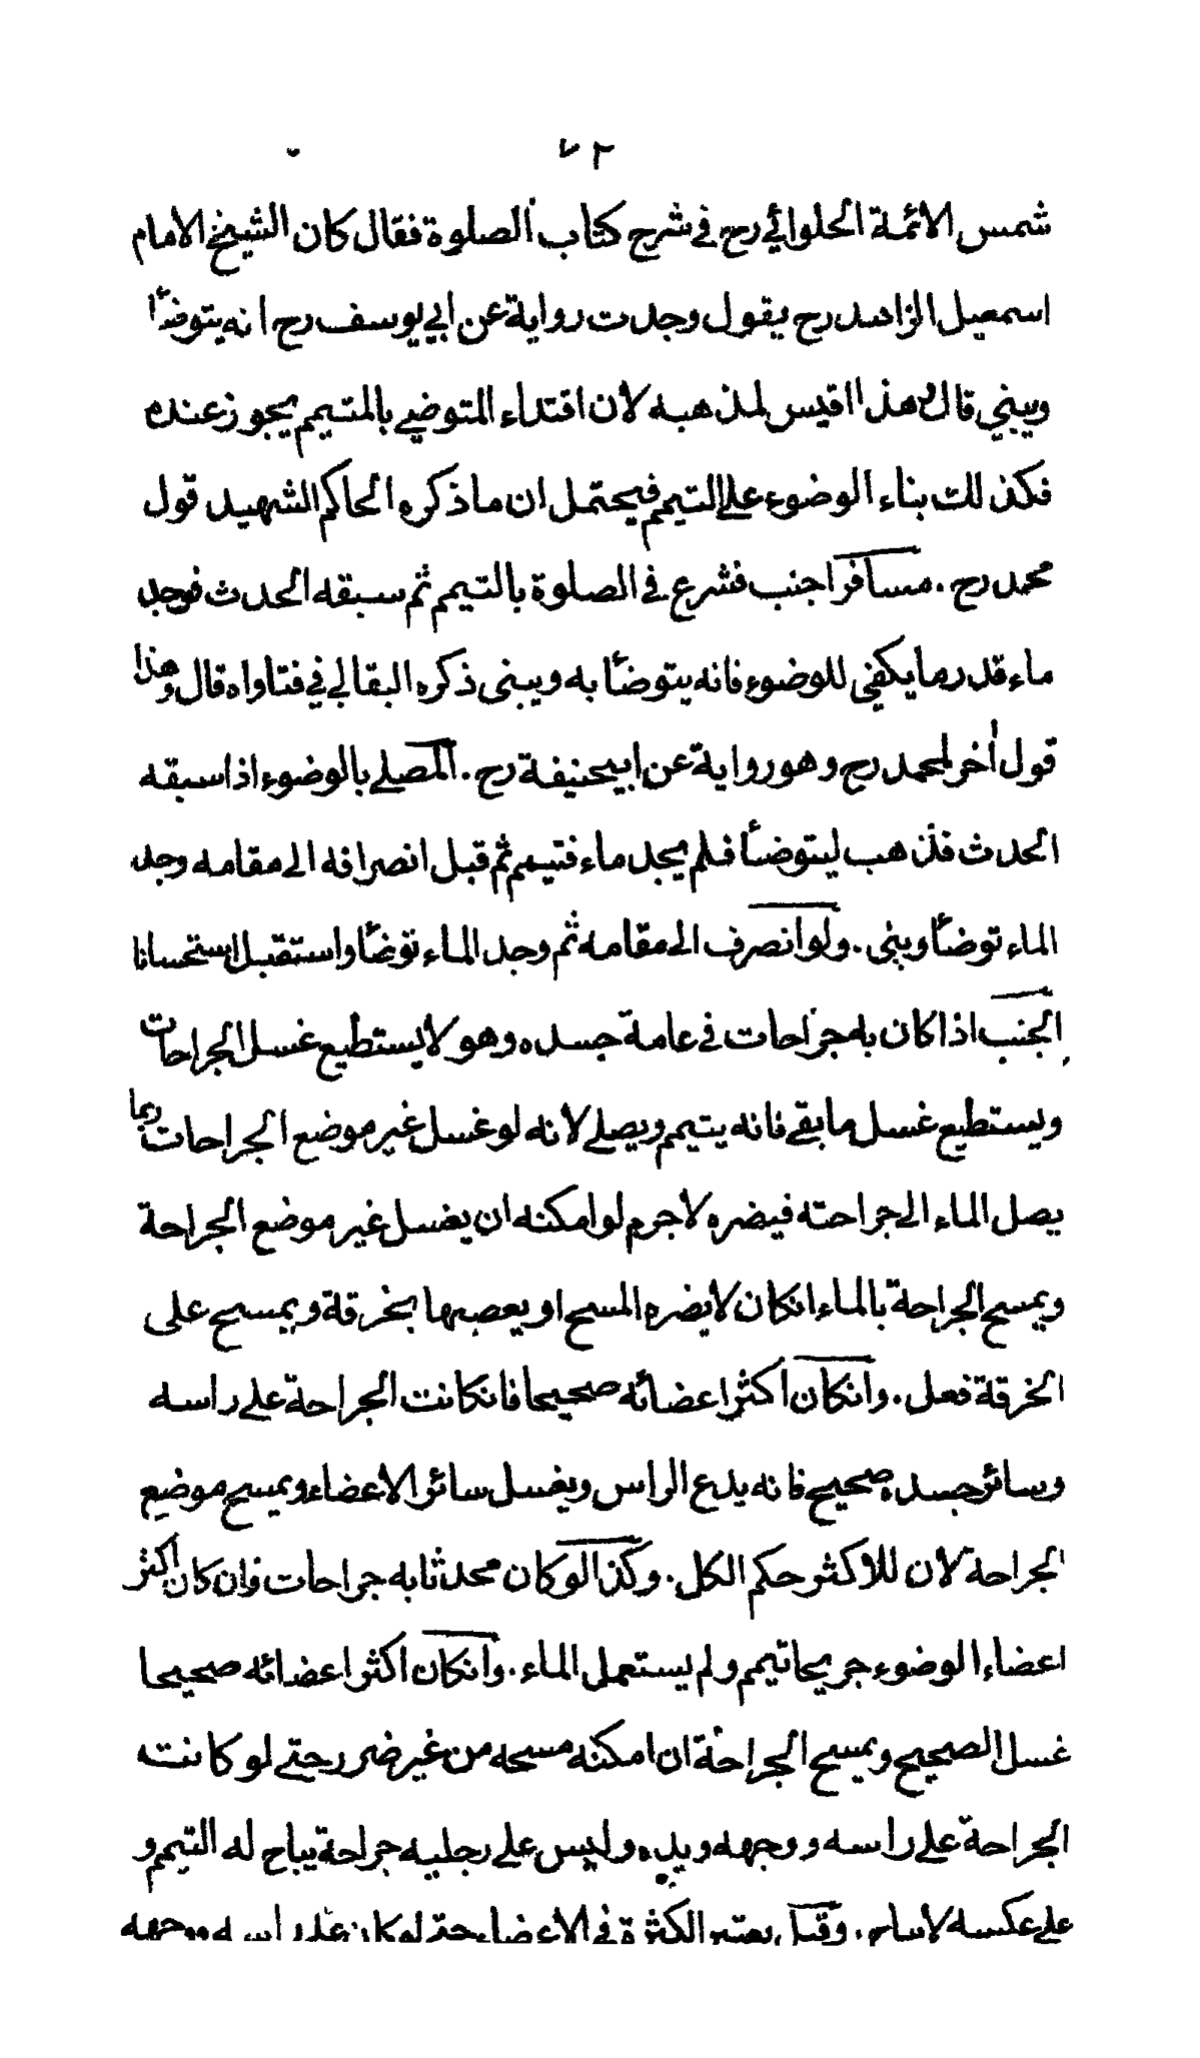 ٧٢
شمس الائمة الحلوائي رح في شرح كتاب الصلوة فقال كان الشيخ الامام
اسمعيل الزاهد رح يقول وجدت رواية عن ابي يوسف رح انه يتوضأ
ويبني قال وهذا اقيس لمذهبه لان اقتداء المتوضي بالمتيمم يجوز عنده
فكذلك بناء الوضوء على التيمم فيحتمل ان ما ذكره الحاكم الشهيد قول
محمد رح . مسافر اجنب فشرع في الصلوة بالتيمم ثم سبقه الحدث فوجد
ماء قدر ما يكفي للوضوء فانه يتوضأ به ويبنى ذكره البقالي في فتاواه قال وهذا
قول أخر لمحمد رح وهو رواية عن ابيحنيفة رح . المصلے بالوضوء اذا سبقه
الحدث فذهب ليتوضأ فلم يجد ماء فتيمم ثم قبل انصرافه الى مقامه وجد
الماء توضأ وبنى . ولو انصرف الى مقامه ثم وجد الماء توضأ واستقبل استحسانا
الجنب اذا كان به جراحات في عامة جسده وهو لا يستطيع غسل الجراحات
ويستطيع غسل ما بقے فانه يتيمم ويصلے لانه لو غسل غير موضع الجراحات ربما
يصل الماء الى جراحته فيضره لا جرم لو امكنه ان يغسل غير موضع الجراحة
ويمسح الجراحة بالماء انكان لا يضره المسح او يعصبها بخرقة ويمسح على
الخرقة فعل . وانكان اكثر اعضائه صحيحا فانكانت الجراحة علے راسه
وسائر جسده صحيح فانه يدع الراس ويغسل سائر الاعضاء ويمسح موضع
الجراحة لان للاكثر حكم الكل . وكذا لو كان محدثا به جراحات فان كان اكثر
اعضاء الوضوء جريحا تيمم ولم يستعمل الماء . وانكان اكثر اعضائه صحيحا
غسل الصحيح ويمسح الجراحة ان امكنه مسحه من غير ضرر حتے لو كانت
الجراحة علے راسه ووجهه ويده وليس علے رجليه جراحة يباح له التيمم و
علے عكسه لا يباح . وقيل يعتبر الكثرة في الاعضاء حتے لو كان علے راسه ووجهه